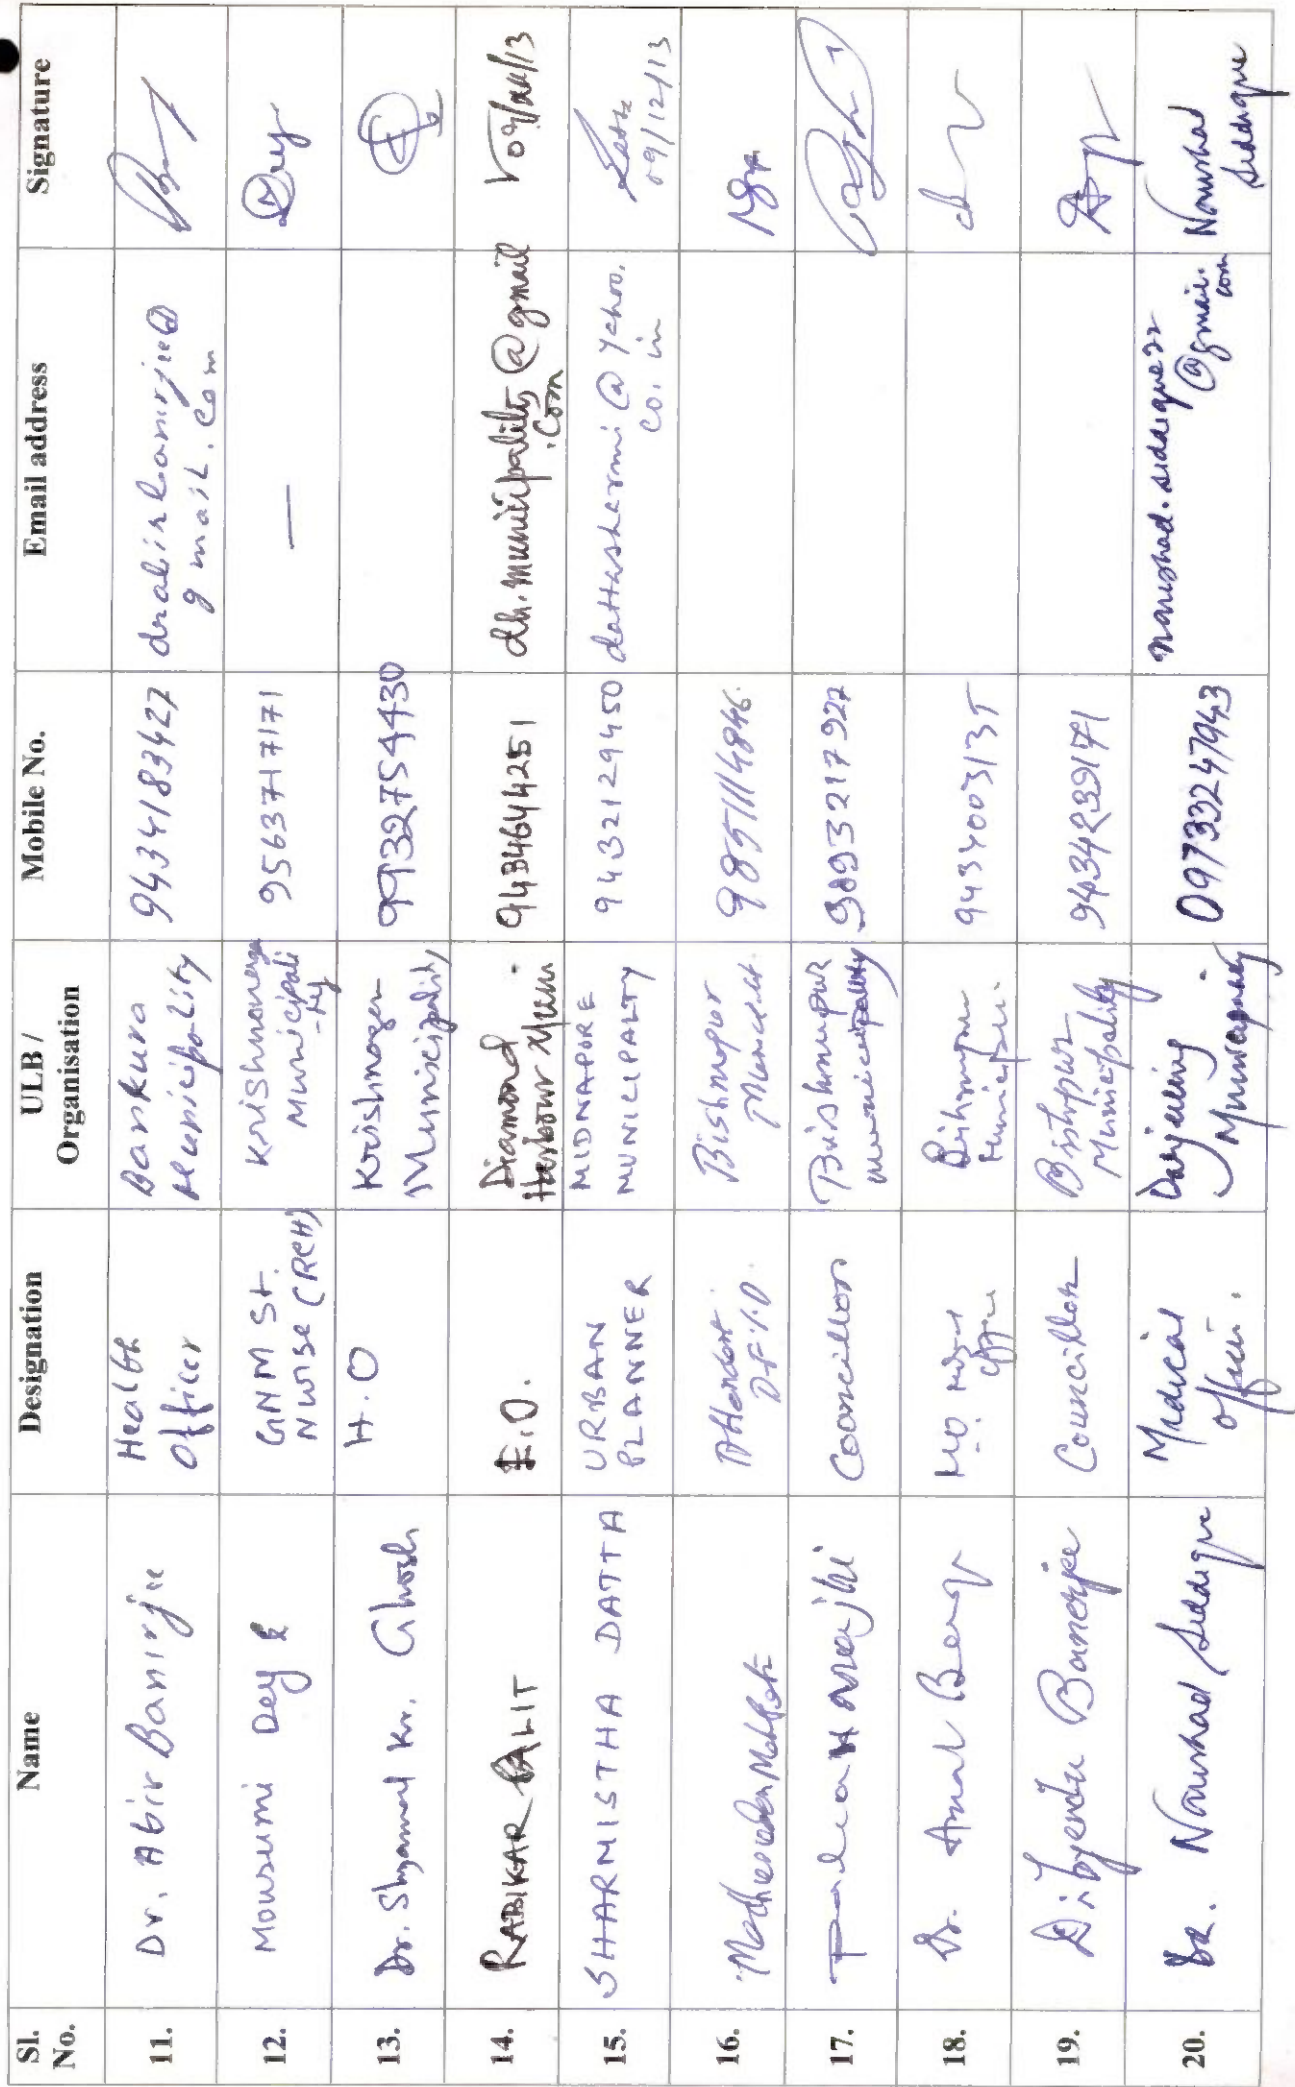 Sl. No. Name Designation ULB / Organisation Mobile No. Email address Signature
11. Dr. Abir Banerjee Health Officer Bankura Municipality 9434183427 drabirbanerjee@gmail.com
12. Mousumi Dey GNM St. Nurse (RCH) Krishnanagar Municipality 9563717171 — Dey
13. Dr. Shyamal Kr. Ghosh H.O Krishnagar Municipality 9932754430
14. RABIKAR PALIT E.O. Diamond Harbour Mun. 9434644251 dh.municipality@gmail.com 09/12/13
15. SHARMISTHA DATTA URBAN PLANNER MIDNAPORE MUNICIPALTY 9432129450 dattasharmi@yahoo.co.in 09/12/13
16. Attendent Bishnupur
17. Majhi Councillor Bishnupur Municipality
18. Dr. Amal M.O. Bishnupur 9434003135
19. Dibyendu Banerjee Councillor Bishnupur Municipality 9434239171
20. Dr. Nawshad Siddique Medical Officer. Darjeeling Municipality 09733247943 nawshad.siddique22@gmail.com Nawshad Siddique